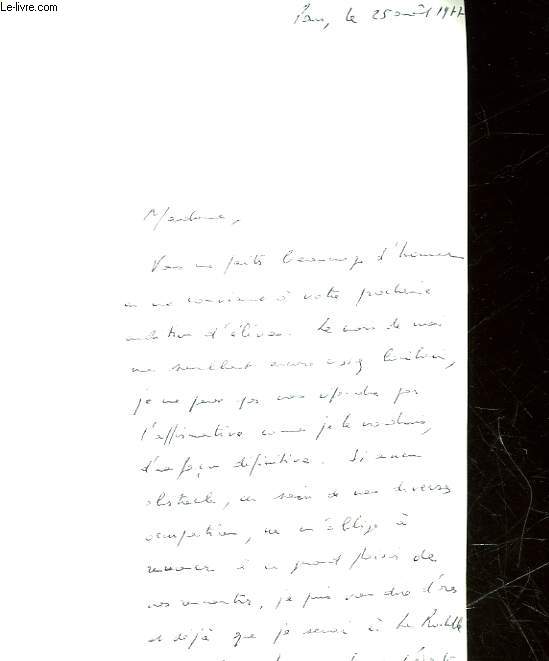 Le-livre.com
Pau, le 25 août 1977
Madame,
Vous me faites beaucoup d'honneur
en me conviant à votre prochaine
audition d'élèves. Le mois de mai
me semblant encore assez lointain,
je ne peux pas vous répondre par
l'affirmative comme je le voudrais,
d'une façon définitive. Si aucun
obstacle, au sein de mes diverses
occupations, ne m'oblige à
renoncer à ce grand plaisir de
vous rencontrer, je puis vous dire d'ores
et déjà que je serai à La Rochelle